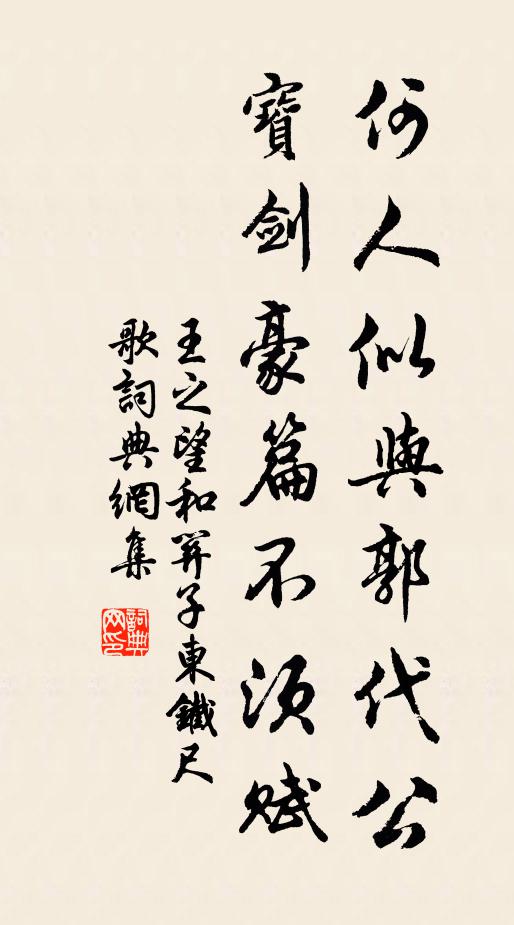 何人似與郭代公
寶劍豪篇不須賦
王之望和羿子東鐵尺
歌詞典網集
詞典网印